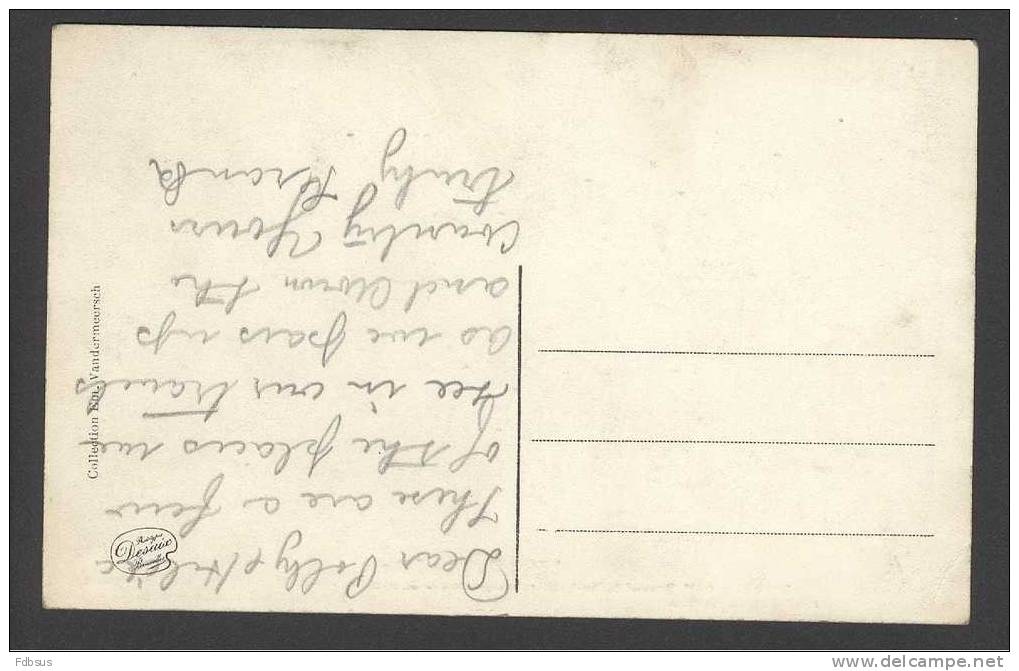 Dear Polly & Hilda
These are a few
of the places we
see in our travels
as we pass up
and down the
country Yours
truly Frank
Collection Em. Vandermeersch
Desaix
Bruxelles
Fdbsus
delcampe.net